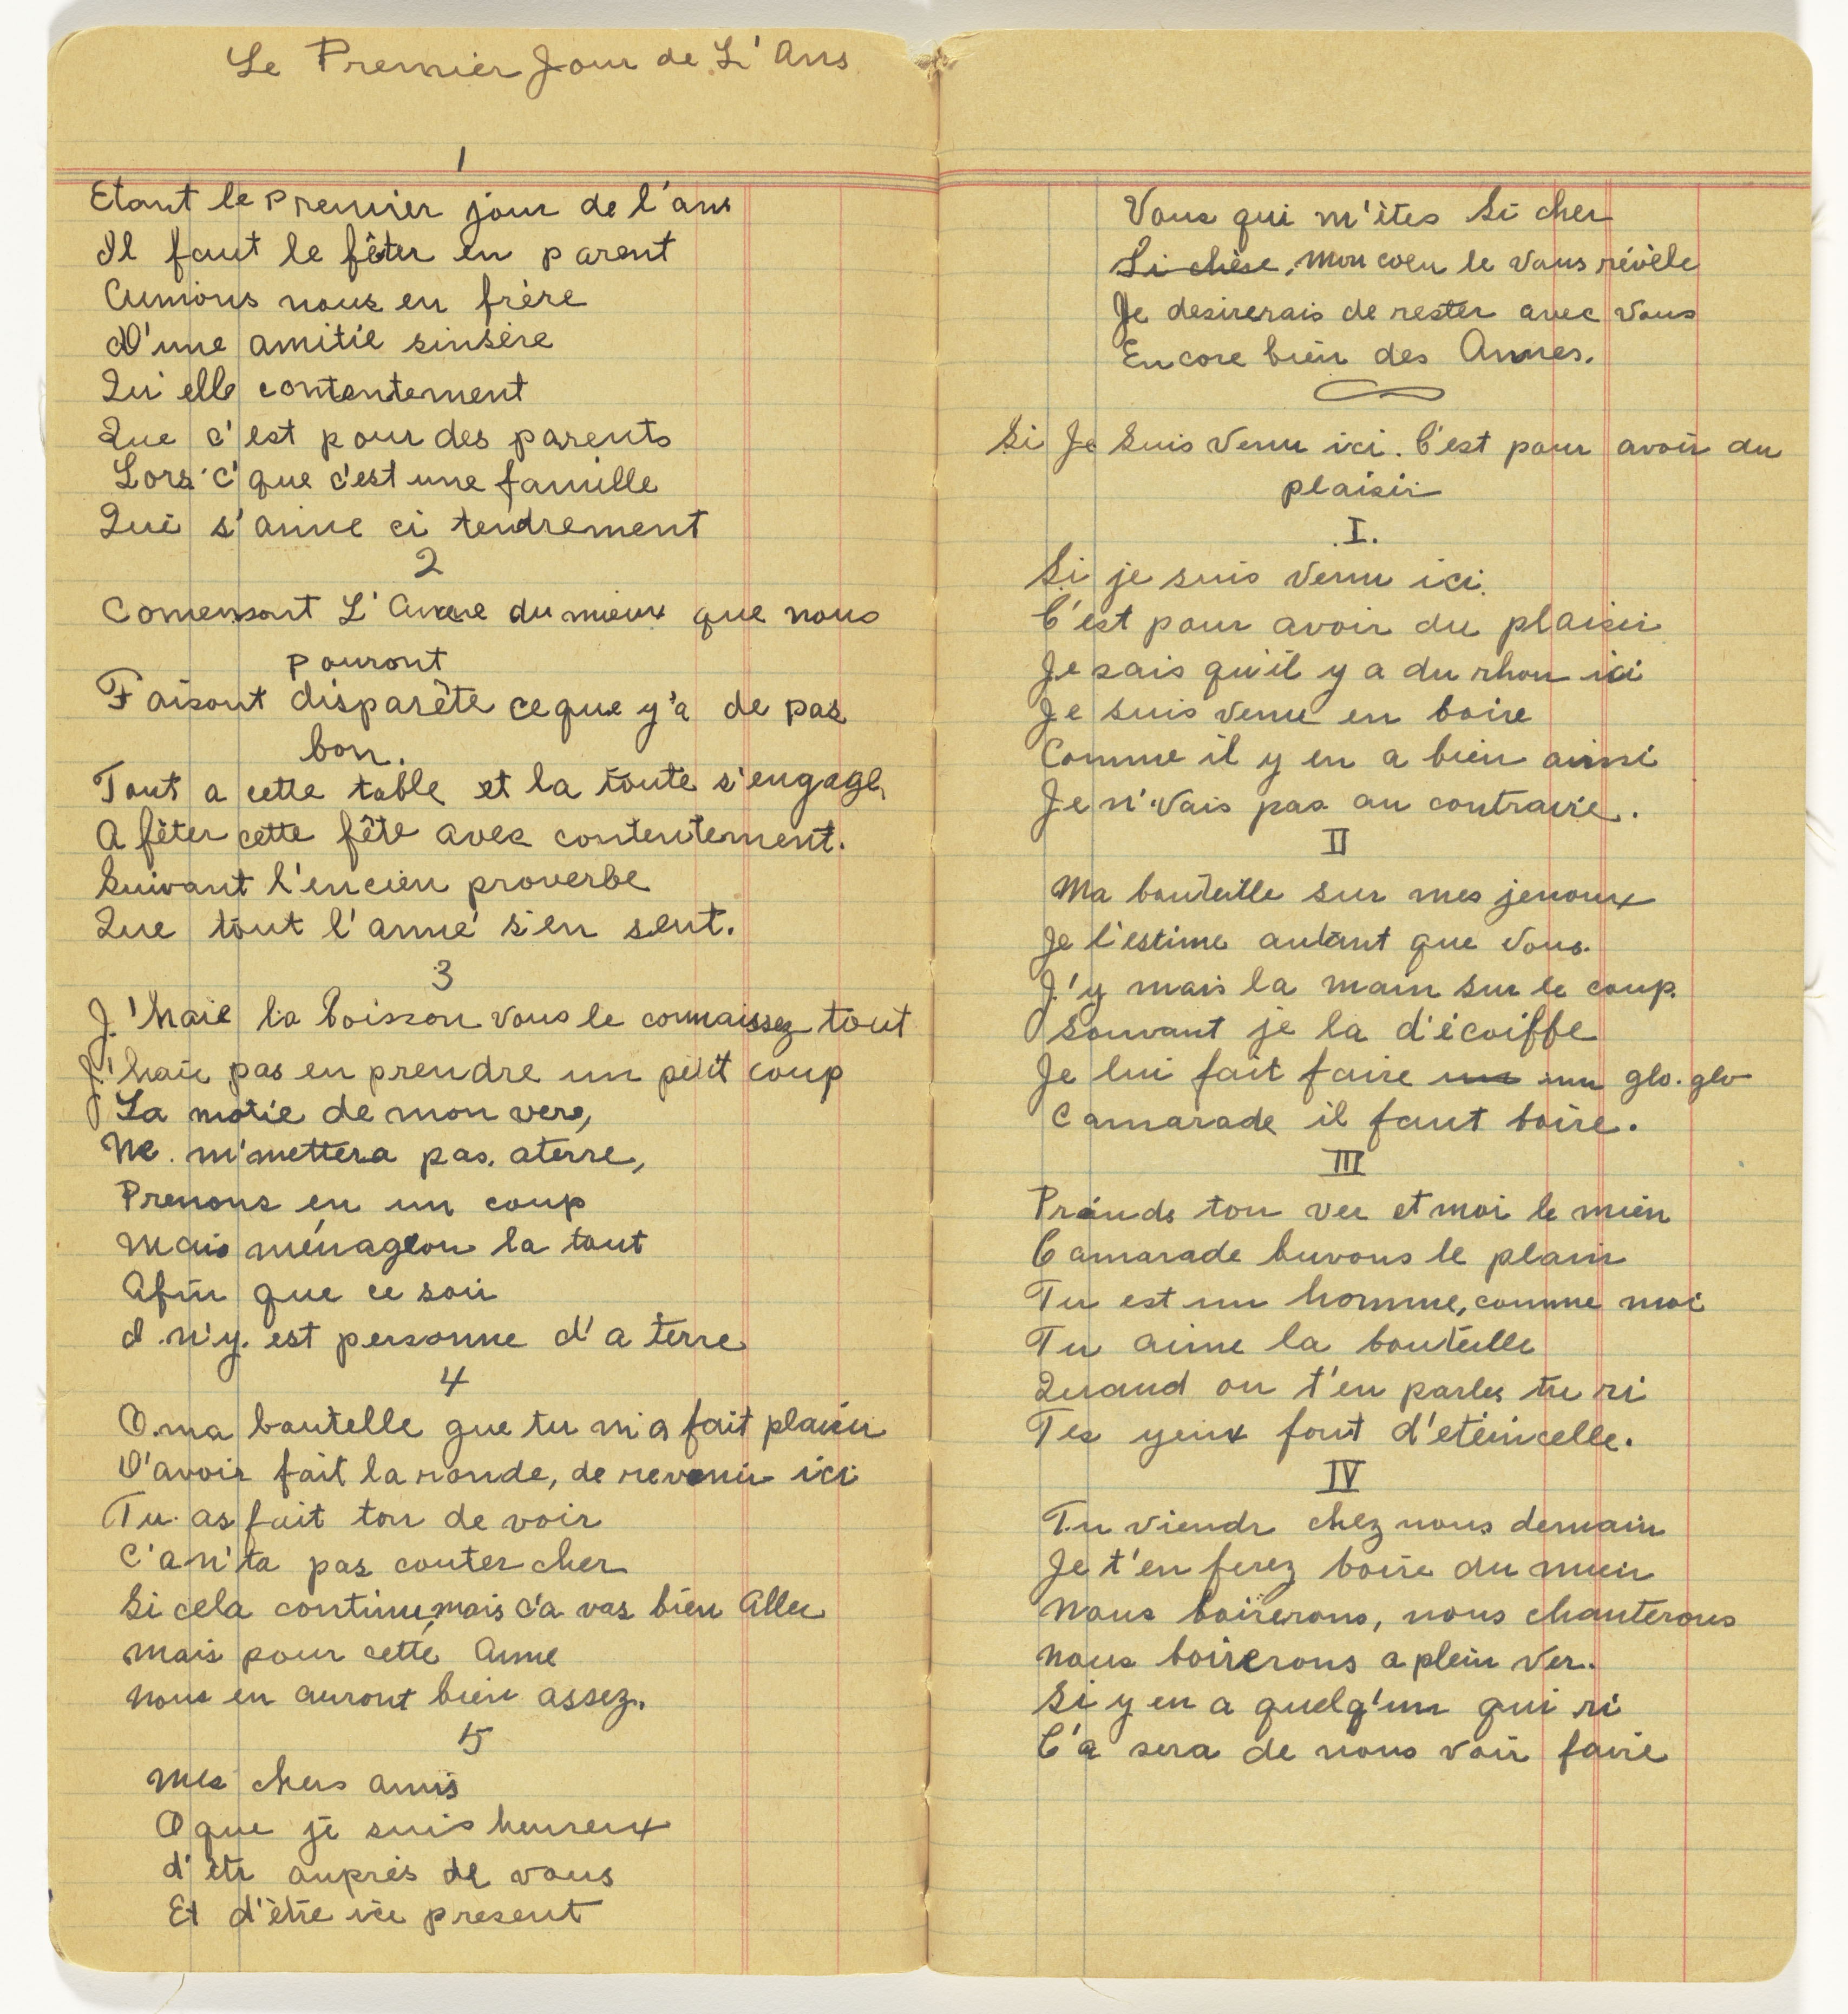 Le Premier Jour de L'Ans
1
Etant le Premier jour de l'ans
Il faut le fêter en parent
Aumions nous en frère
D'une amitié sinsère
Qu'elle contentement
Que c'est pour des parents
Lors'c'que c'est une famille
Qui s'aime ci tendrement
2
Comensont L'Annee du mieux que nous
pouront
Faisont disparête ce que y'a de pas
bon.
Tout a cette table et la toute s'engage,
A fêter cette fête avec contentement.
Suivant l'encien proverbe
Que tout l'anné s'en sent.
3
J'haie la boisson vous le connaissez tout
J'hais pas en prendre un petit coup
La motié de mon vere,
Ne m'mettera pas aterre,
Prenons en un coup
Mais ménageon la tout
Afin que ce soir
Il n'y est personne d'a terre
4
O ma boutelle que tu m'a fait plaisir
D'avoir fait la ronde, de revenir ici
Tu as fait ton de voir
C'a n'ta pas couter cher
Si cela continu, mais c'a vas bien Aller
Mais pour cette Anne
Nous en auront bien assez.
5
Mes chers amis
O que je suis heureux
d'êtr auprès de vous
Et d'être ici present
Vous qui m'êtes Si cher
Si chèse, mon coeu le vous révèle
Je desirerais de rester avec vous
Encore bien des Annes.
Si Je Suis Venu ici. C'est pour avoir du
plaisir
I.
Si je suis Venu ici.
C'est pour avoir du plaisir
Je sais qu'il y a du rhom ici
Je suis venu en boire
Comme il y en a bien ainsi
Je n'vais pas au contraire.
II
Ma bouteille sur mes jenoux
Je l'estime autant que vous.
J'y mais la main sur le coup.
Souvant je la d'écoiffe
Je lui fait faire un un glo.glo
Camarade il faut boire.
III
Prends ton ver et moi le mien
Camarade buvons le plain
Tu est un homme, comme moi
Tu aime la bouteille
Quand on t'en parles tu ri
Tes yeux font d'eteincelle.
IV
Tu viendr chez nous demain
Je t'en ferez boire du mien
Nous boirerons, nous chanterons
Nous boirerons a plein Ver.
Si y en a quelq'un qui ri
C'a sera de nous voir faire